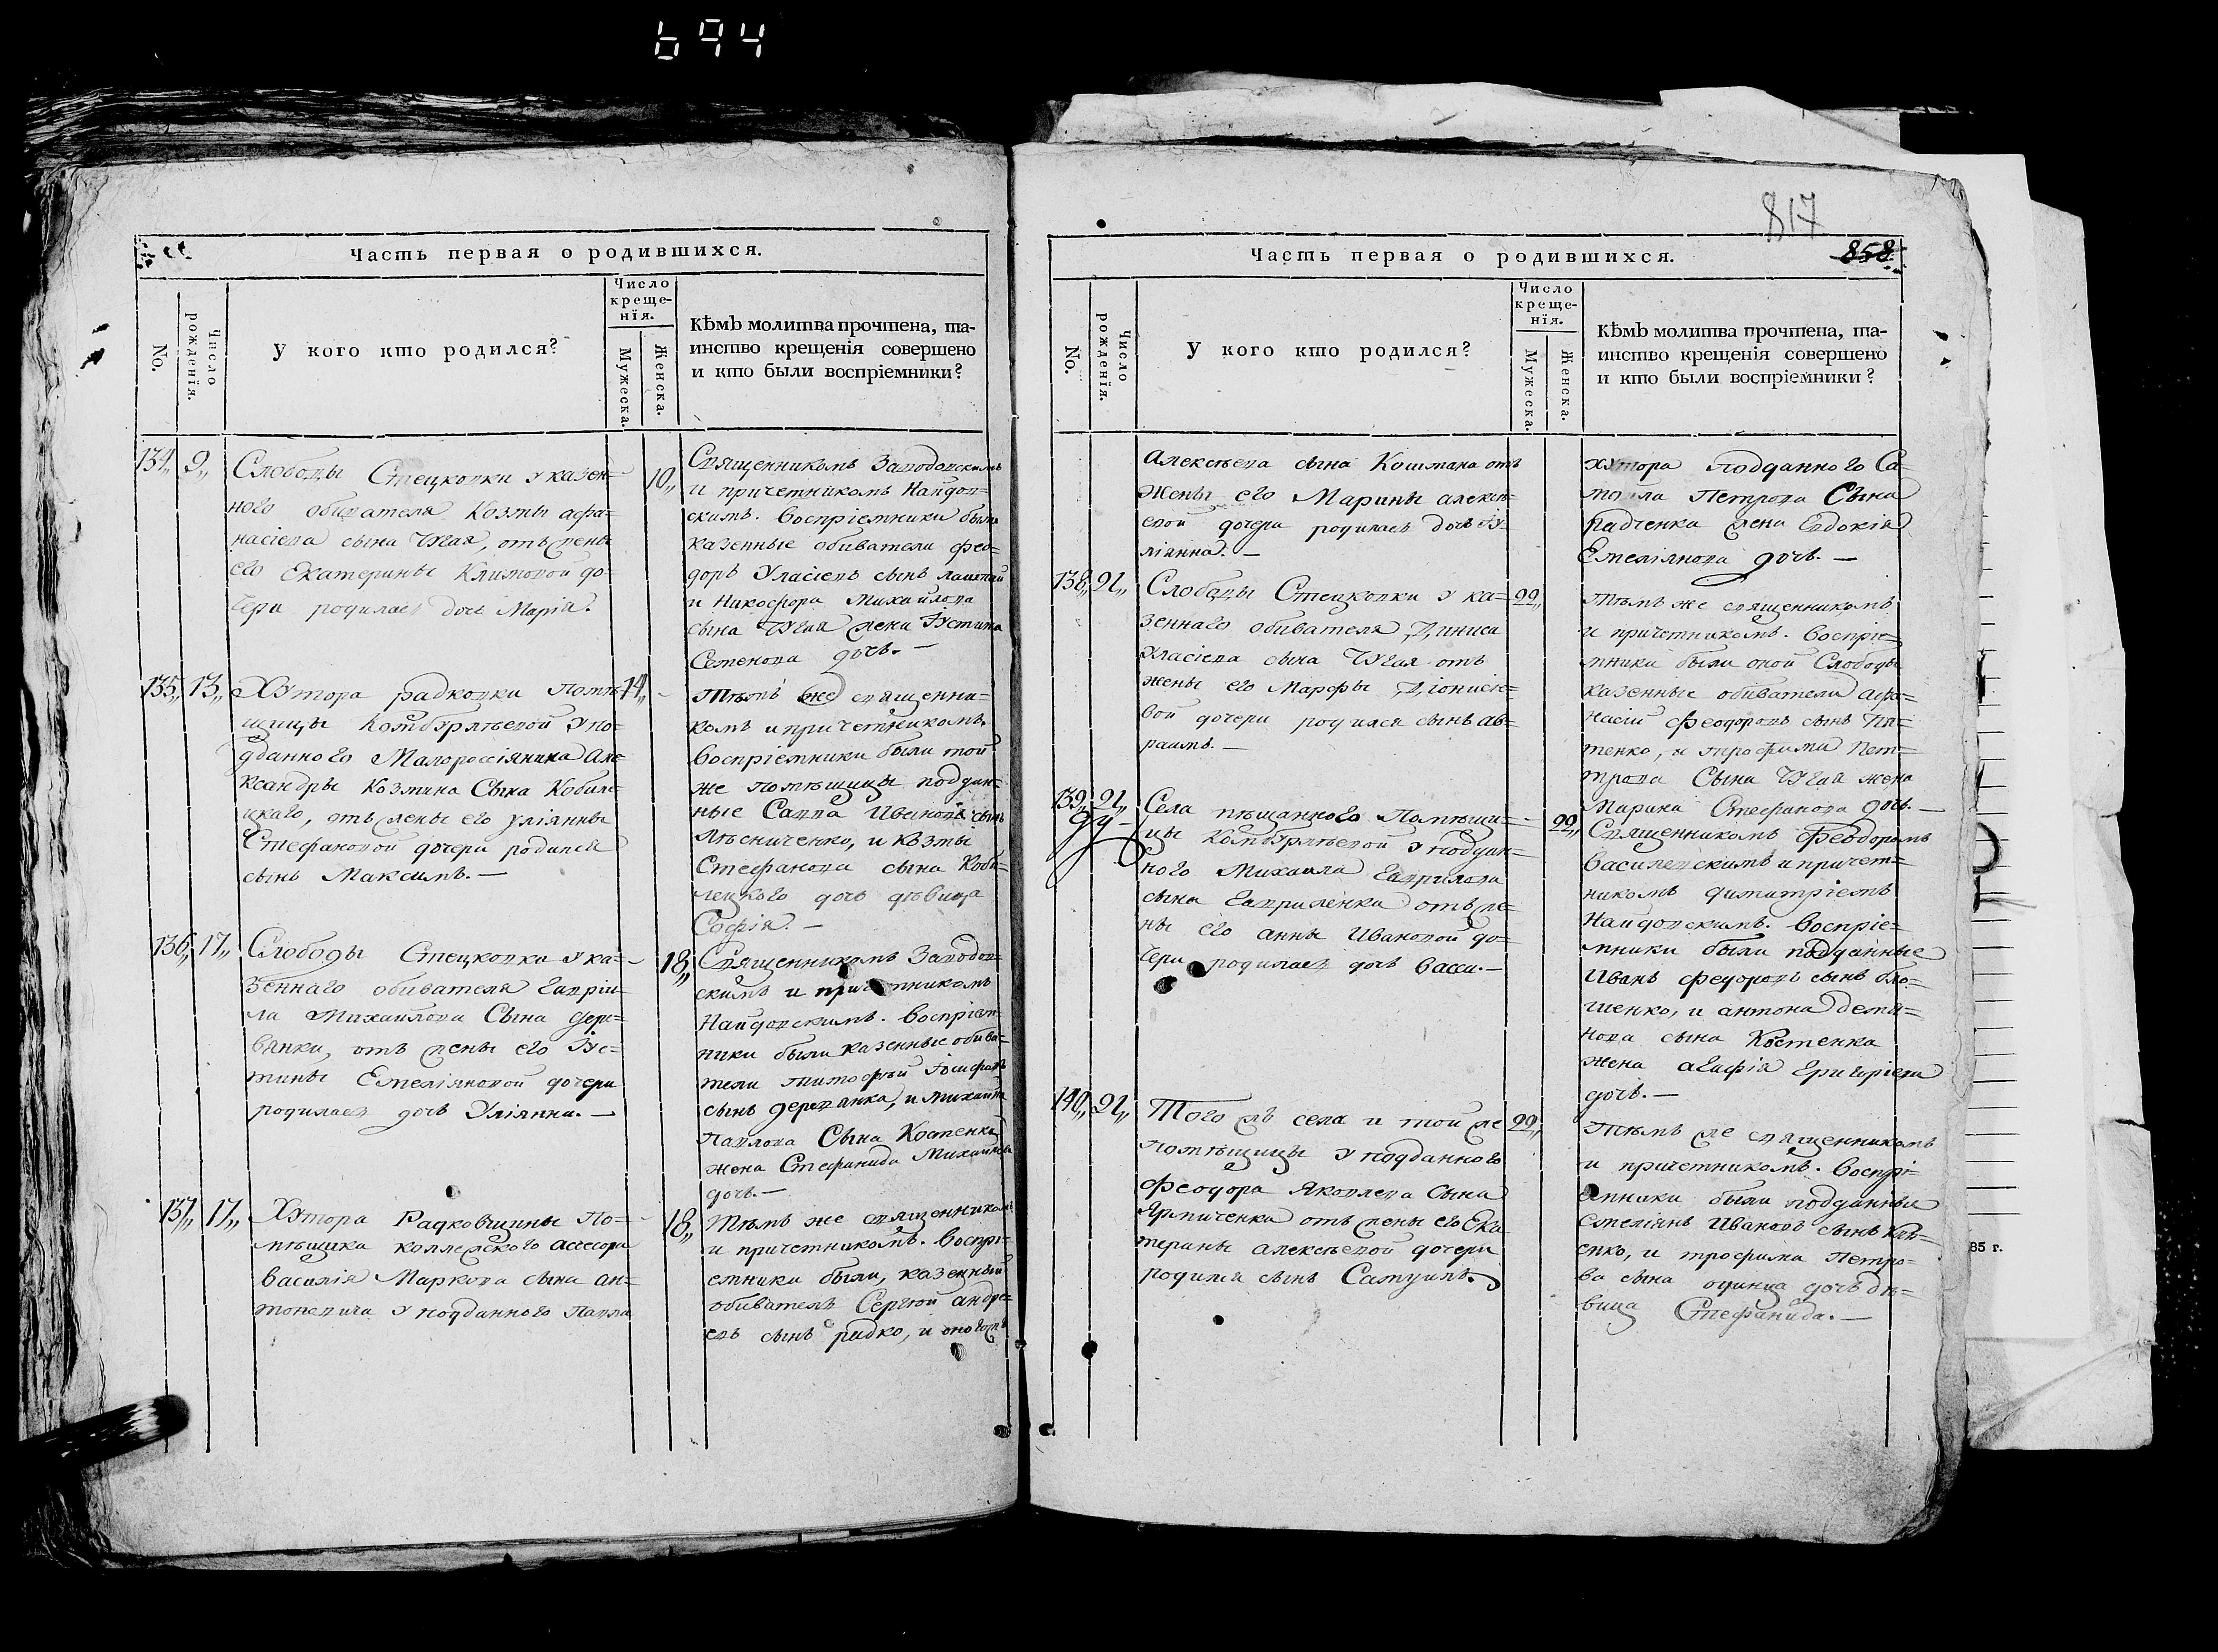 694
Часть первая о родившихся.
No.
Число рожденїя.
У кого кто родился?
Число
креще-
нїя.
Мужеска.
Женска.
Кѣмъ молитва прочтена, та-
инство крещенїя совершено
и кто были воспрїемники?
134,, 9,, Слободы Стецковки у казен-
ного обывателя Козмы Афа-
насіева сына Чугая, отъ жены
его Екатерины Климовой до-
чери родилась дочь Марія.
10,,
Священникомъ Заводовскимъ
и причетникомъ Найдов-
скимъ. Воспріемники были
казенные обыватели Фео-
доръ Уласіевъ сынъ
и Никифора Михайлова
сына Чугая жена Іустина
Семенова дочь. —
135,, 13,, Хутора Радковки помѣ-
щицы Комбурлѣевой у по-
дданного Малороссіянина Але-
ксандры Козмина Сына Кобиле-
цкаго, отъ жены его Уліянны
Стефановой дочери родился
сынъ Максимъ. —
14,,
Тѣмъ же священни-
комъ и причетникомъ.
Воспріемники были той
же помѣщицы поддан-
ные Савва Ивановъ сынъ
Лѣсниченко, и Козмы
Стефанова сына Коби-
лецкого дочь дѣвица
Софія. —
136,, 17,, Слободы Стецковки у ка-
зеннаго обивателя Гаврiи-
ла Михайлова Сына Дере-
вянки, отъ жены его Іус-
тины Емеліяновой дочери
родилась дочь Уліянна. —
18,,
Священникомъ Заводов-
скимъ и причетникомъ
Найдовскимъ. Воспріем-
ники были казенные обива-
тели Тимофей Іосифовъ
сынъ Деревянка, и Михаила
Павлова Сына Костенка
жена Стефанида Михайлова
дочь. —
137,, 17,, Хутора Радковщины По-
мѣщика коллежского ассесора
Василія Маркова сына Ан-
тоневича у подданного Павла
18,,
Тѣмъ же священникомъ
и причетникомъ. Воспрі-
емники были, казенный
обиватель Сергѣй Андре-
евъ сынъ Радко, и оногожъ
817
Часть первая о родившихся.
858
No.
Число рожденїя.
У кого кто родился?
Число
креще-
нїя.
Мужеска.
Женска.
Кѣмъ молитва прочтена, та-
инство крещенїя совершено
и кто были воспрїемники?
Алексѣева сына Кошмана отъ
жены его Марины Алексѣ-
евой дочери родилась дочь Іу-
ліянна. —
хутора подданного Са-
мойла Петрова Сына
Радченка жена Евдокія
Емеліянова дочь. —
138,, 21,, Слободы Стецковки у ка-
зеннаго обивателя Диниса
Уласіева сына Чугая отъ
жены его Марфы Діонисіе-
вой дочери родился сынъ Ав-
раамъ. —
22,,
Тѣмъ же священникомъ
и причетникомъ. Воспріе-
мники были оной Слободы
казенные обиватели Афа-
насій Феодоровъ сынъ
тенко, и Трофима Пет-
трова Сына Чугая жена
Марина Стефанова дочь —
139,, 21,, Села пѣщаного Помѣщи-
цы Комбурлѣевой у поддан-
ного Михаила Гаврилова
сына Гавриленка отъ же-
ны его Анны Ивановой до-
чери родилась дочь Васса. —
22,,
Священникомъ Феодоромъ
Василевскимъ и причет-
никомъ Димитріемъ
Найдовскимъ. Воспріе-
мники были подданные
Иванъ Федоровъ сынъ
шенко, и Антона Демя-
нова сына Костенка
жена Агафія Григоріева
дочь. —
140,, 21,, Того жъ села и той же
помѣщицы у подданного
Феодора Яковлева Сына
Ярмиченка отъ жены его Ека
терины Алексѣевой дочери
родился сынъ Самуилъ.
22,,
Тѣмъ же священникомъ
и причетникомъ. Воспрі-
емники были подданные
Емеліянъ Ивановъ сынъ
енко, и Трофима Петро-
ва сына дочь дѣ-
вица Стефанида. —
85 г.